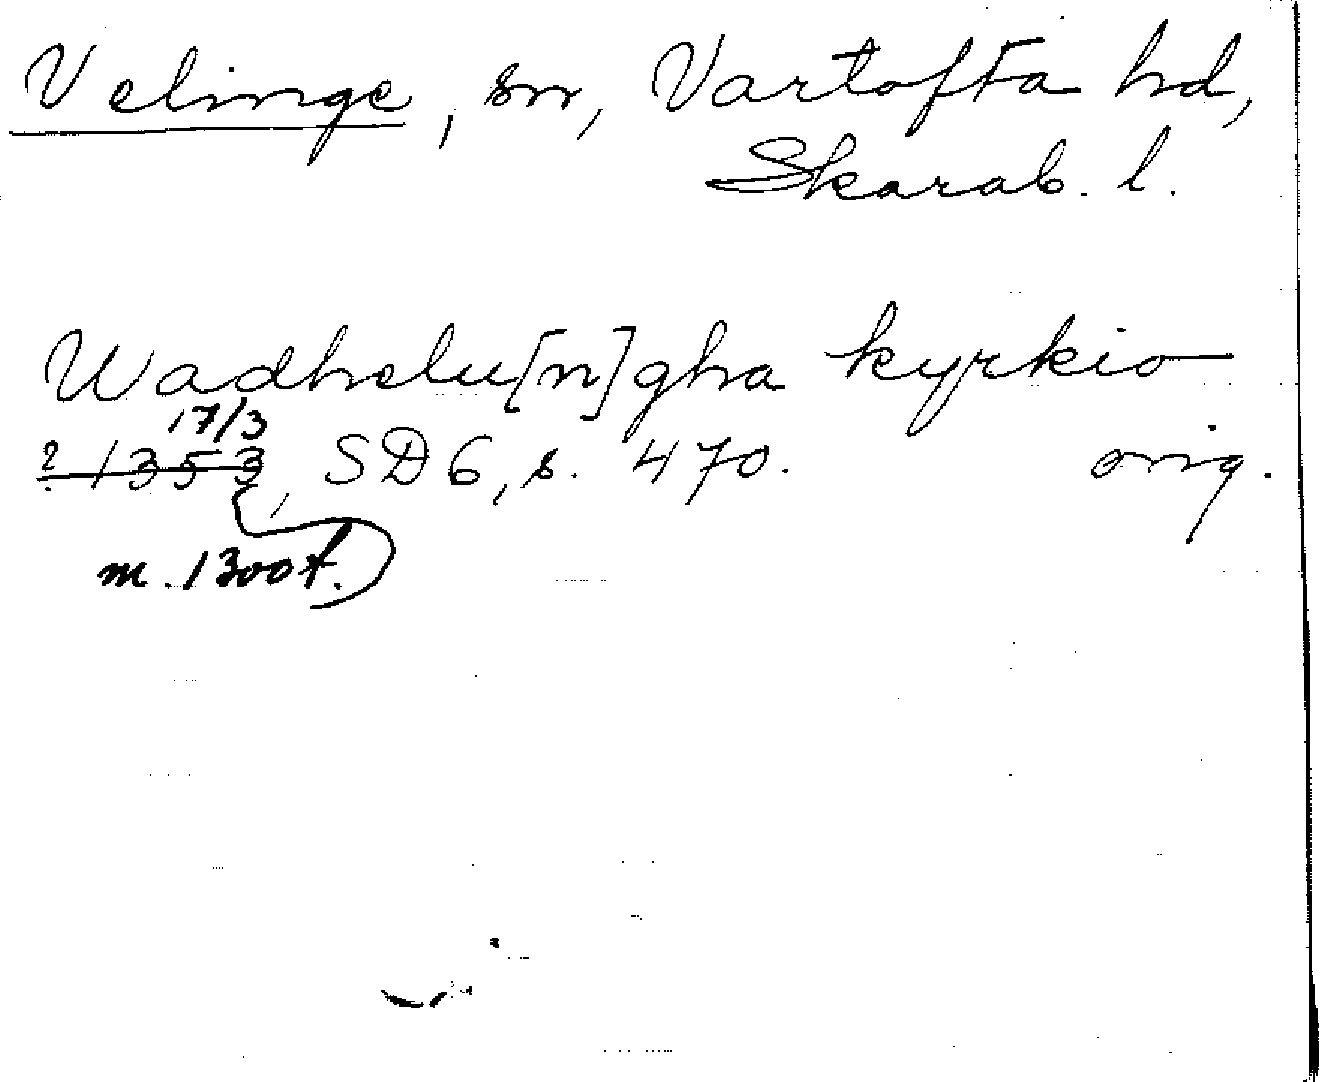 Velinge, sn, Vartofta hd,
Skarab. l.
Wadhelu[n]gha kyrkio
17/3
? 1353, SD 6, s. 470. orig.
m. 1300t.